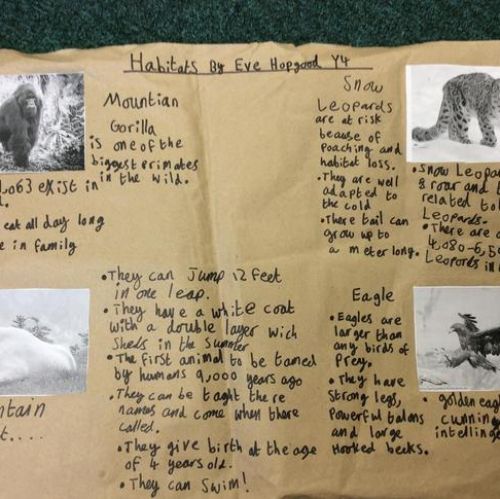 Habitats By Eve Hopgood Y4
Mountian
Gorilla
is one of the
biggest primates
in the wild.
1,063 exist in
eat all day long
e in family
Snow
Leopards
are at risk
because of
Poaching and
habitat loss.
•They are well
adapted to
the cold
•There tail can
grow up to
a meter long.
•Snow Leopa
& roar and
related to
Leopards.
•There are
4,080-6,5
Leopords in
•They can Jump 12 feet
in one leap.
•They have a white coat
with a double layer wich
sheds in the summer
•The first animal to be tamed
by humans 9,000 years ago
•They can be taght there
names and come when there
called.
•They give birth at the age
of 4 years old.
•They can swim!
ntain
t....
Eagle
•Eagles are
larger than
any birds of
Prey.
•They have
strong legs,
Powerful talons
and large
Hooked beeks.
•golden eagl
cunning
intelling